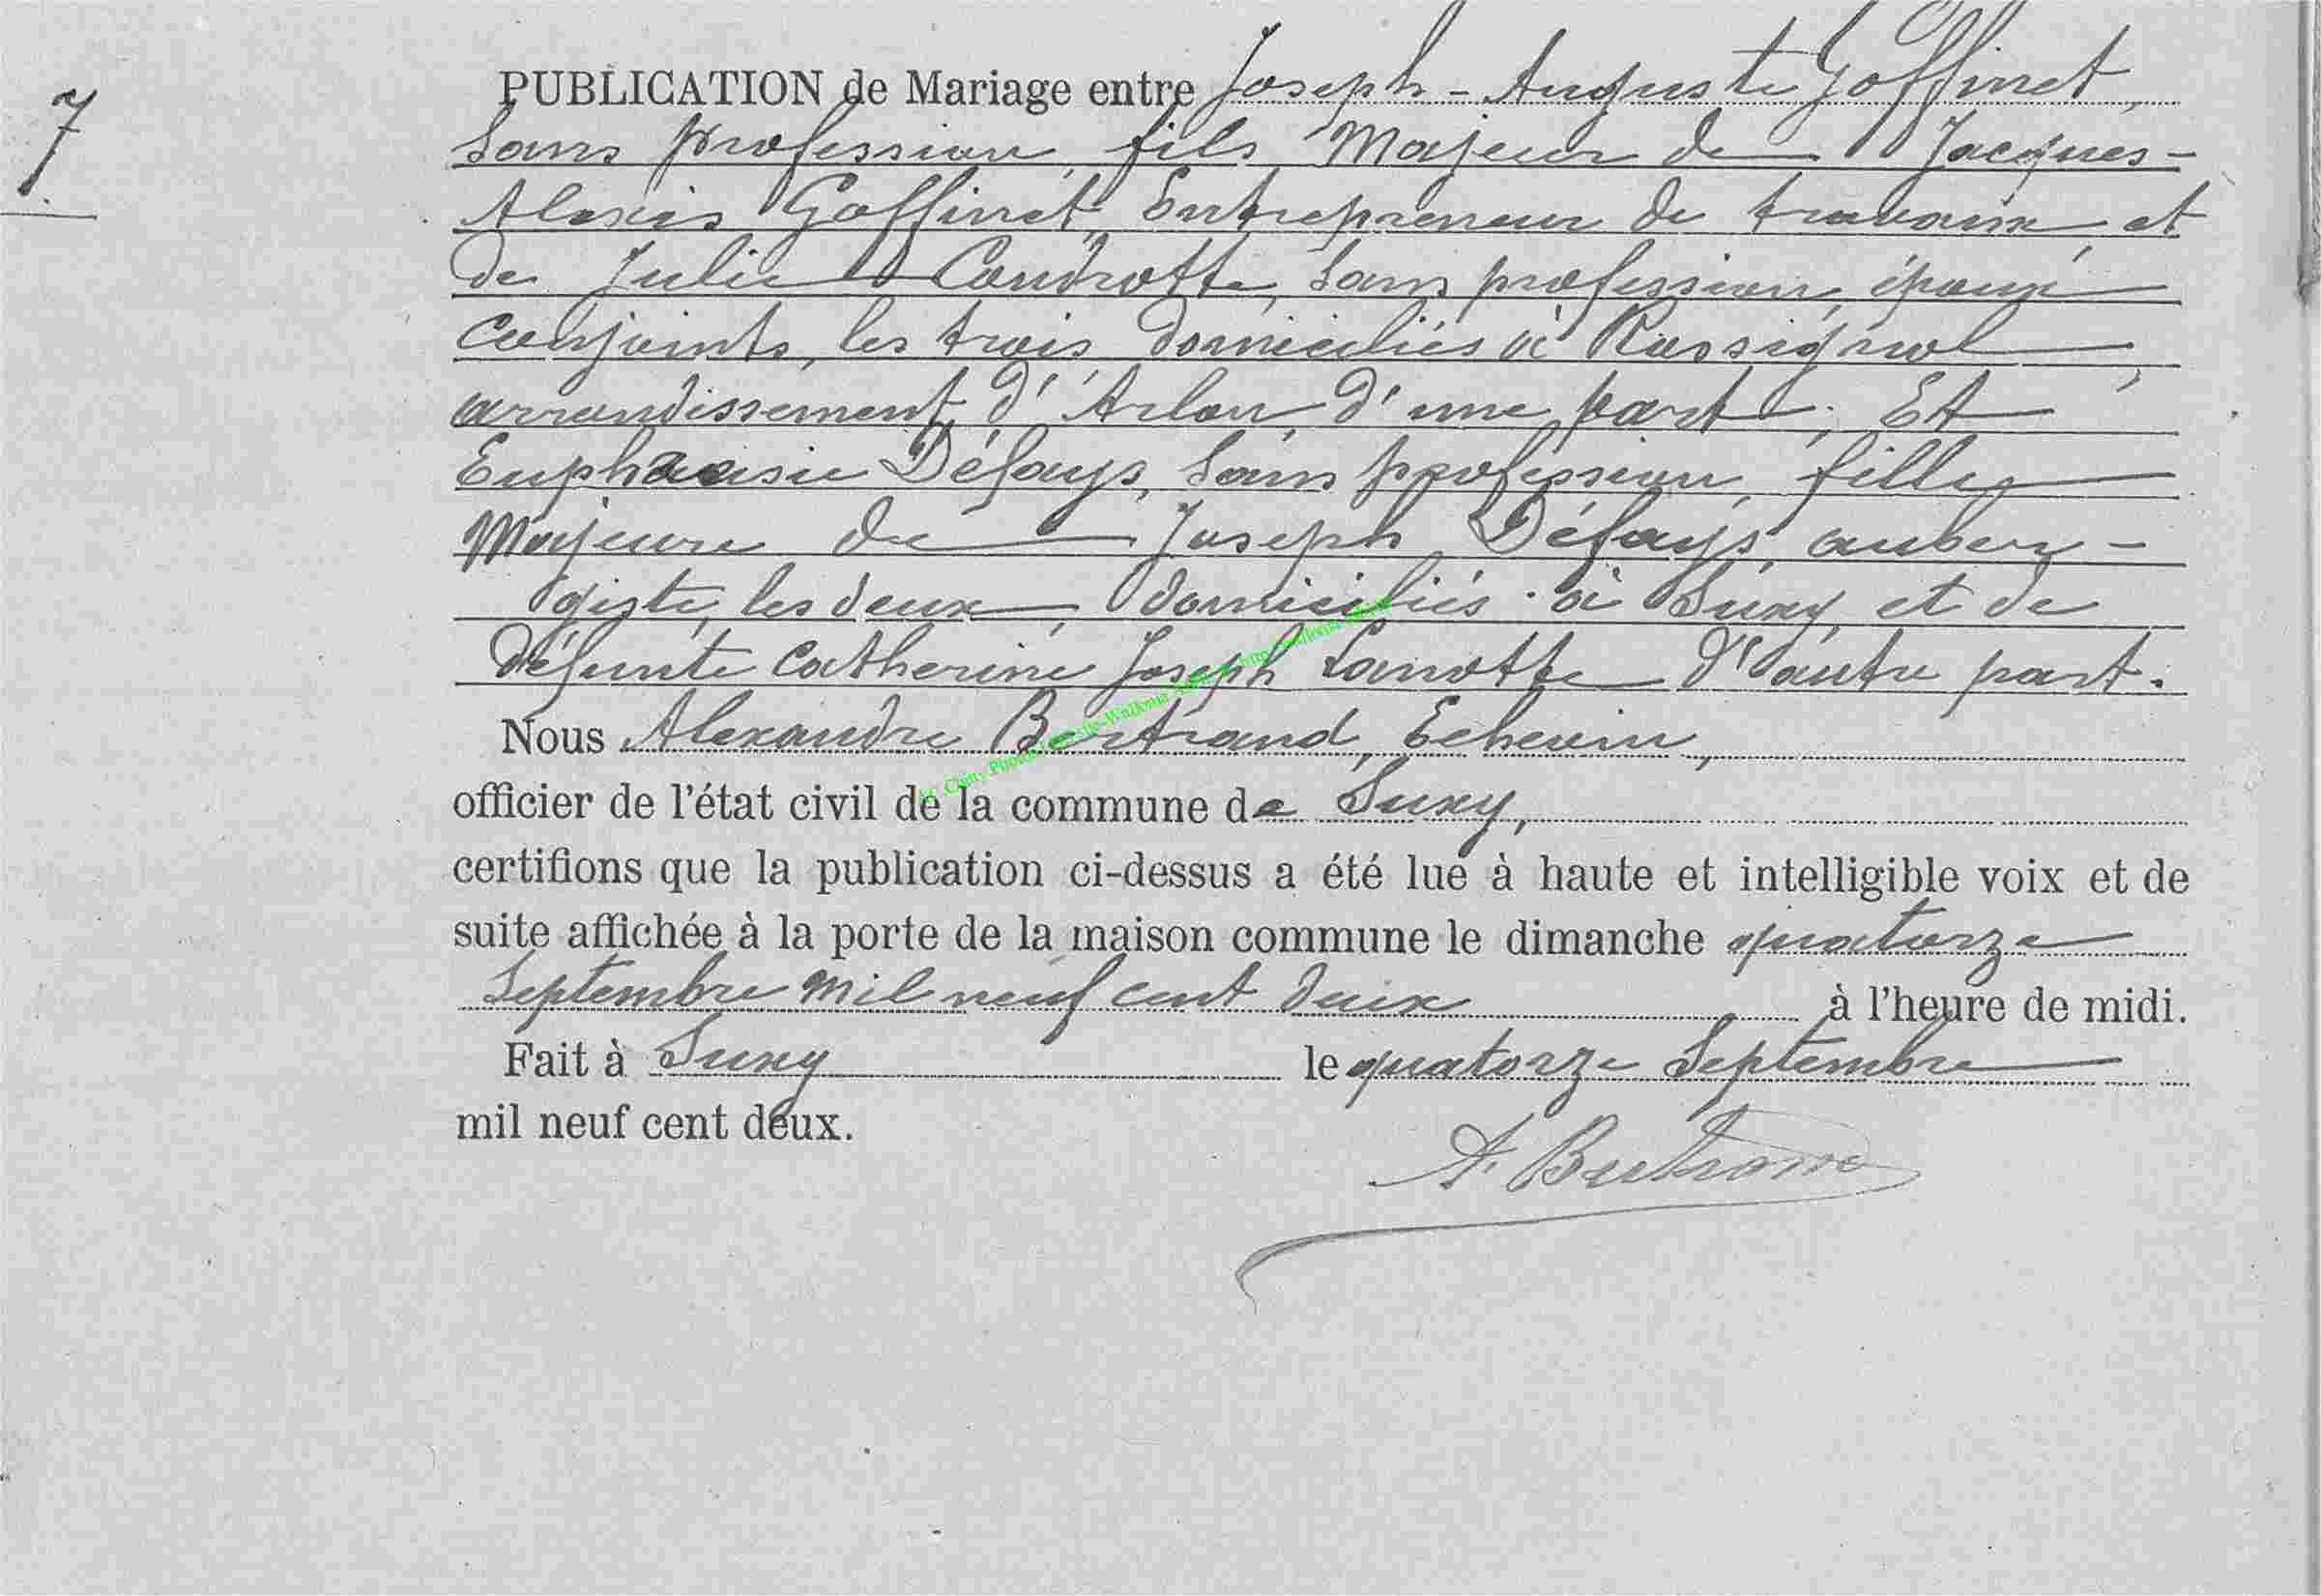 7
PUBLICATION de Mariage entre Joseph-Auguste Goffinet,
sans profession, fils Majeur de Jacques-
Alexis Goffinet, Entrepreneur de travaux, et
de Julie Condrotte, sans profession, époux
conjoints, les trois domiciliés à Rossignol,
arrondissement d'Arlon, d'une part; Et
Euphrasie Défays, sans profession, fille
Majeure de Joseph Défays, auber-
giste, les deux domiciliés à Suxy, et de
défunte Catherine Joseph Lanotte d'autre part.
Nous Alexandre Bertrand, Echevin,
officier de l'état civil de la commune de Suxy,
certifions que la publication ci-dessus a été lue à haute et intelligible voix et de
suite affichée à la porte de la maison commune le dimanche quatorze
Septembre mil neuf cent deux à l'heure de midi.
Fait à Suxy le quatorze Septembre
mil neuf cent deux.
A. Bertrand